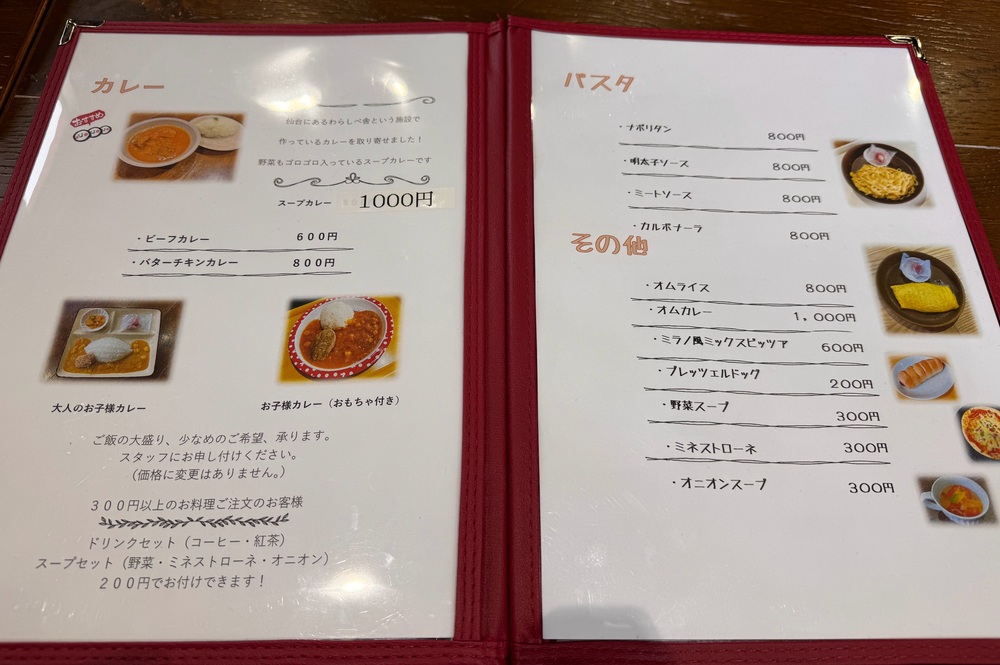 カレー
おすすめ
仙台にあるわらしべ舎という施設で
作っているカレーを取り寄せました！
野菜もゴロゴロ入っているスープカレーです
スープカレー 1000円
・ビーフカレー 600円
・バターチキンカレー 800円
大人のお子様カレー
お子様カレー（おもちゃ付き）
ご飯の大盛り、少なめのご希望、承ります。
スタッフにお申し付けください。
（価格に変更はありません。）
３００円以上のお料理ご注文のお客様
ドリンクセット（コーヒー・紅茶）
スープセット（野菜・ミネストローネ・オニオン）
２００円でお付けできます！
パスタ
・ナポリタン 800円
・明太子ソース 800円
・ミートソース 800円
・カルボナーラ 800円
その他
・オムライス 800円
・オムカレー 1,000円
・ミラノ風ミックスピッツア 600円
・プレッツェルドック 200円
・野菜スープ 300円
・ミネストローネ 300円
・オニオンスープ 300円